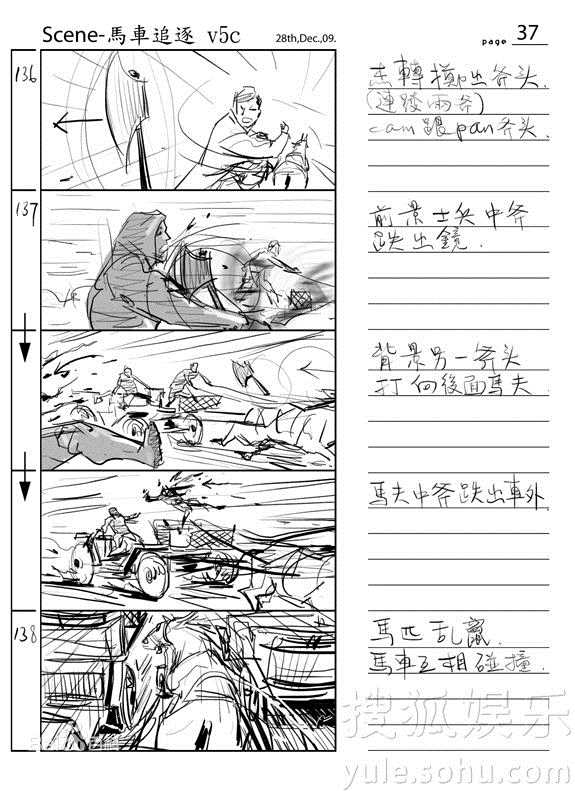 Scene-馬車追逐 v5c
28th,Dec.,09.
page 37
136
杰轉擲出斧头.
(連踤兩斧)
cam 跟 pan 斧头.
137
前景士兵中斧
跌出鏡.
背景另一斧头
打向後面馬夫.
馬夫中斧跌出車外.
138
馬匹乱竄.
馬車互相碰撞.
搜狐娱乐
yule.sohu.com